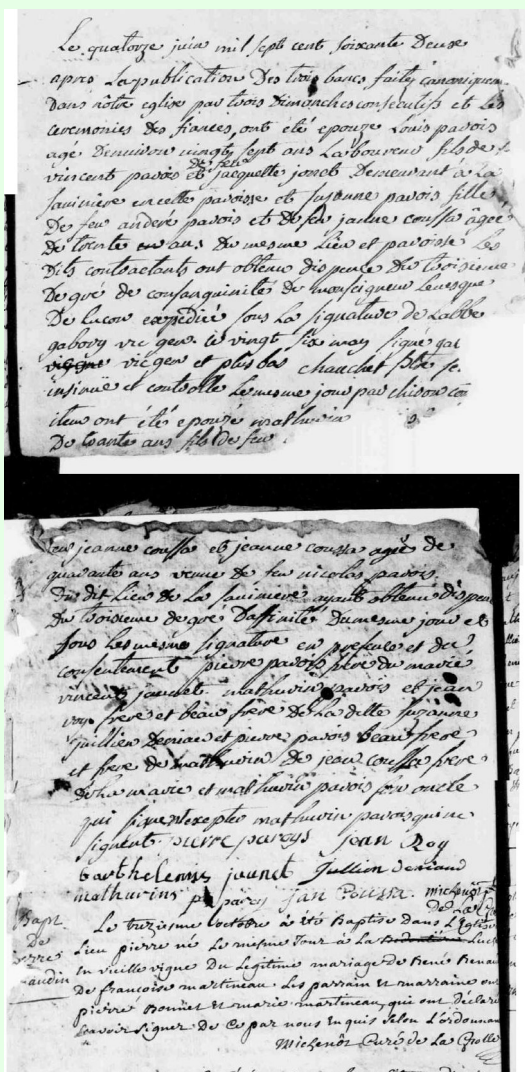 Le quatorze juin mil sept cent soixante Deux
apres La publication Des trois bancs faites canoniquem
Dans nôtre eglise par trois Dimanches consecutifs et Les
ceremonies des fiancés, ont eté epouzé Louis parois
agé Denuiron vingt sept ans Laboureur fils de
vincent parois et de feu jacquette jonet Demeurant a La
saniniere en cette paroisse et suzanne parois fille
De feu andere parois et de feu janne coussa agee
de trente ans du mesme Lieu et paroisse Les
Dits contractants ont obtenu dispence du troisieme
Degré de consanguinité de monseigneur Leuesque
De Lucon expedieé sous La signature de Labbe
gaboury vic gen. le vingt six may signé gab
vic gen et plus bas chauchet pbt se.
insinué et controllé Le mesme jour par chison con
item ont étés epouzé mathurin
De trante ans fils de feu
feu jeanne coussa et jeanne coussa ageé de
quarante ans veuue de feu nicolas parois
du dit Lieu de La saniniere ayant obtenu Dispen
du troisieme degré Daffinité du mesme jour et
sous Les mesme signature en presence et du
consentement pierre parois frere du marié
vincent jaunet mathurin parois et jean
roy frere et beau frere de La dille suzanne
jullien deniau et pierre parois beau frere
et frere de mathurin De jean coussa frere
de La marieé et mathurin parois son oncle
qui signent excepter mathurin parois qui ne
signent. pierre pareys jean Roy
barthelemy jaunet Jullien deniaud
mathurins parey jan Coussa. michenôt
de La G
Bapt.
De
pierre
naudin
Le trezieme octobre à été Baptisé Dans L'Eglise
Lieu pierre né Le même Jour à La Luc
en vieille vigne Du Legitime mariage de René Renau
De francoise martineau. Les parrain et marraine ont
pierre Bonnet et marie martineau, qui ont Declaré
scavoir signer De Ce par nous Enquis selon L'ordonnan
Michenôt Curé de La Grolle